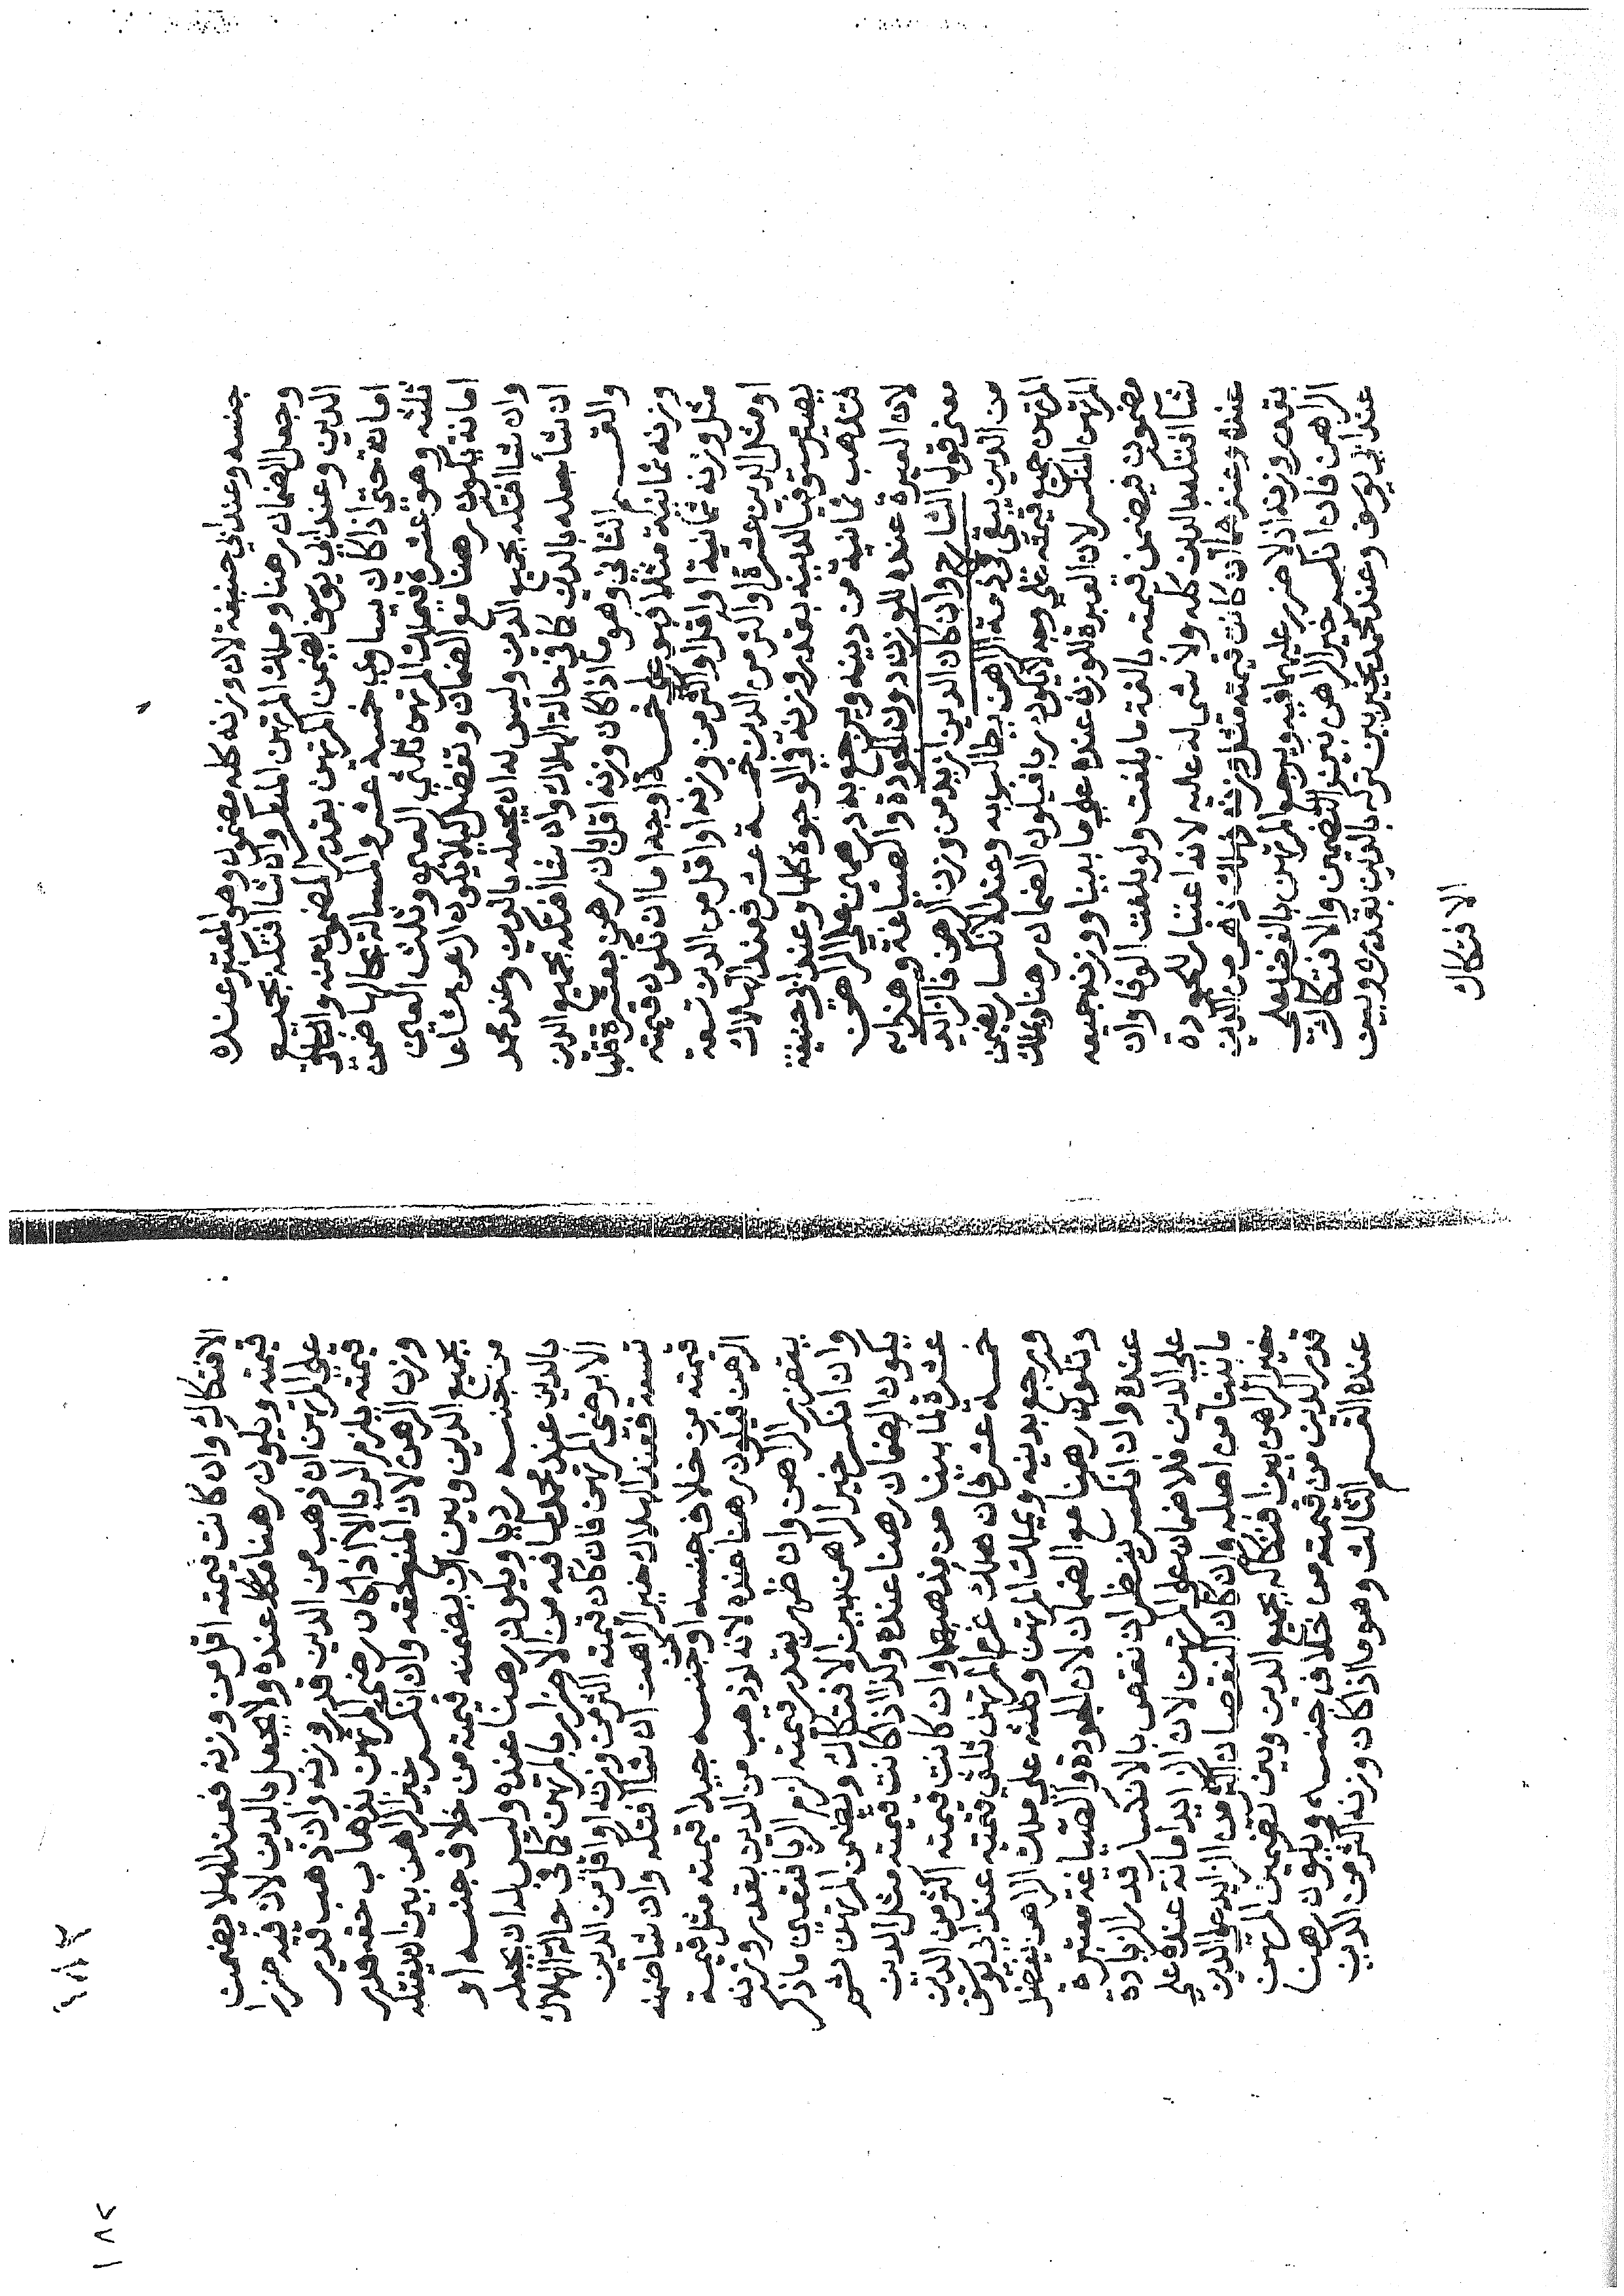 جنسه وعند ابي حنيفة لان وزنه كله مضمون وهو المعتبر عنده
وجعل الضمان رهنا وملك المرتهن المنكسر وان شا افتكه بجميع
الدين وعند ابي يوسف يضمن المرتهن بقدر المضمون منه والباقي
امانة حتى اذا كان يساوي خمسة عشر والمسالة بحالها ضمن
ثلثه وهو عشرة فيملك المرتهن ثلثي العين وثلث العين
امانة يكون رهنا مع الضمان وتفصل كيلا يكون الرهن مشاعا
وان شا افتكه بجميع الدين وليس له ان يجعله بالدين وعند محمد
ان شا جعله بالدين كما في حالة الهلاك وان شا افتكه بجميع الدين
والقسم الثاني وهو ما اذا كان وزنه اقل بان رهن بعشرة قلبا
وزنه ثمانية مثلا فهو على خمسة اوجه اما ان تكون قيمته
مثل وزنه ثمانية او اقل او اكثر من وزنه او اقل من الدين تسعة
او مثل الدين عشرة او اكثر من الدين خمسة عشر فعند الهلاك
يصير مستوفيا لدينه بقدر وزنه في الوجوه كلها وعند ابي حنيفة
فتذهب ثمانية من دينه ويرجع به درهمين على الراهن
لان العبرة عنده للوزن دون الجودة والصياغة وهذا به
معنى قول الشارح وان كان الدين ازيد من وزن الرهن فالزايد
من الدين يبقى في ذمة الراهن يطالب به وعند الانكسار يضمن
المرتهن جميع قيمته على وجه لا يكون ربا فيكون الضمان رهنا ويملك
المرتهن المنكسر لان العبرة للوزن عنده على ما بينا ووزنه جميعه
مضمون فيضمن قيمته بالغة ما بلغت ولو بلغت الوفا وان
شا افتكه بالدين كله ولا شي له عليه لانه اعتبار للجودة
عنده وعندهما ان كانت قيمته مثل وزنه فهلك ذهب من الدين
بقدر وزنه اذ لا ضرر عليهما فيه ويرجع المرتهن بالفضل على
الراهن فان انكسر خير الراهن بين التضمين والافتكاك
عند ابي يوسف وعند محمد يخير بين تركه بالدين بقدره وبين
الافتكاك
الافتكاك وان كانت قيمته اقل من وزنه فعند الهلاك يضمن
قيمته ويكون رهنا مكا عنده ولا يجعل بالدين لان فيه ضررا
على المرتهن ان ذهب من الدين قدر وزنه وان ذهب قدر
قيمته يلزم الربا الا اذا كان رضي المرتهن بذهاب حقه قدر
وزن الرهن لان المنع لحقه وان انكسر خير الراهن بين ان يفتكه
بجميع الدين وبين ان يضمنه قيمته من خلاف جنسه او
من جنسه رديا ويكون رهنا عنده وليس له ان يجعله
بالدين عند محمد لما فيه من الاضرار بالمرتهن كما في حالة الهلاك
الا برضى المرتهن فان كان قيمته اكثر من وزنه او اقل من الدين
تسعة فعند الهلاك خير الراهن ان شا افتكه وان شا ضمنه
قيمته من خلاف جنسه او من جنسه جيدا قيمته مثل قيمة
الرهن فيكون رهنا عنده لانه لو ذهب من الدين بقدر وزنه
يتضرر الراهن وان ظهر بقدر قيمته لزم الربا فتعين ما ذكر
وان انكسر خير الراهن بين الافتكاك وتضمين المرتهن ثم
يكون الضمان رهنا عنده وكذا اذا كانت قيمته مثل الدين
عشرة لما بينا من مذهبهما وان كانت قيمته اكثر من الدين
خمسة عشر فان هلك غرم المرتهن ثلثي قيمته عند ابي يوسف
ويرجع بدينه ويملك المرتهن وثلثه على ملك الراهن فيفصل
وتكون رهنا مع الضمان لان الجودة والصياغة معتبرة
عنده وان انكسر ينظر ان نقص بالانكسار قدر الزيادة
على الدين فلا ضمان على المرتهن لان الزايد امانة عنده على
ما بينا من اصله وان كان النقصان اكثر من الزايد على الدين
خير الراهن بين افتكاكه بجميع الدين وبين تضمين المرتهن
قدر الدين من قيمته من خلاف جنسه ويكون رهنا
عنده القسم الثالث وهو ما اذا كان وزنه اكثر من الدين
١٨٢